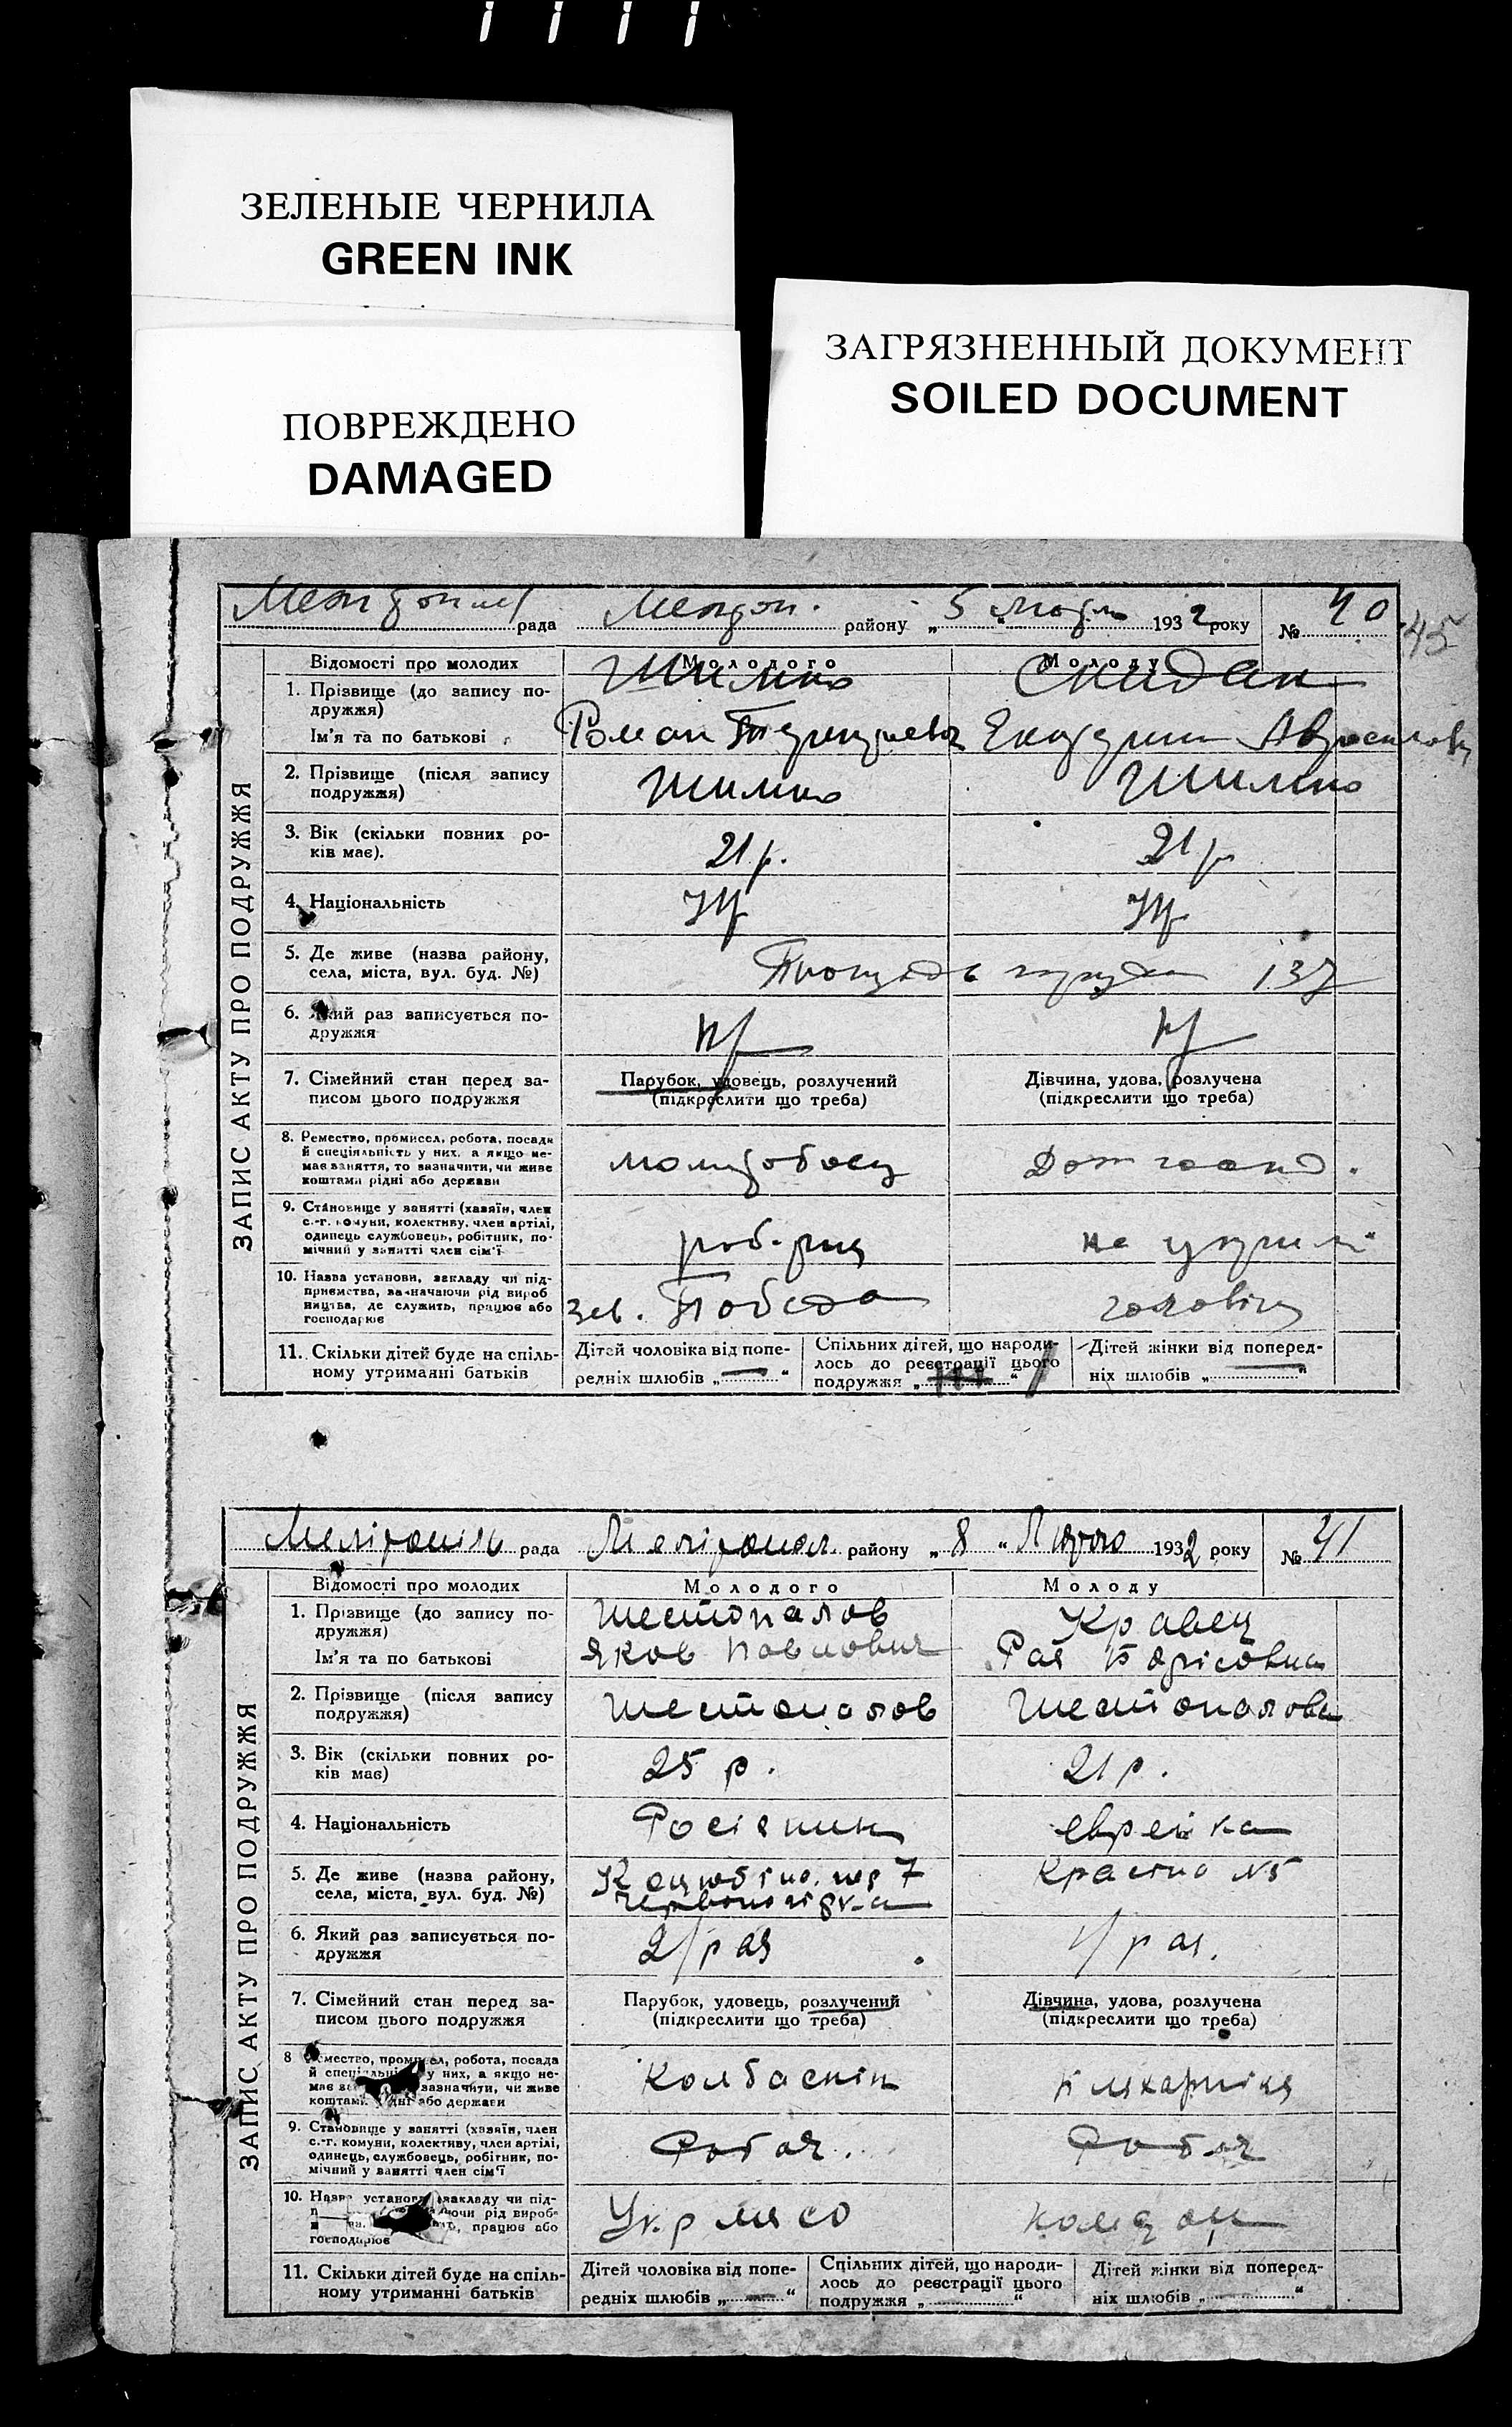 ЗЕЛЕНЫЕ ЧЕРНИЛА
GREEN INK
ПОВРЕЖДЕНО
DAMAGED
ЗАГРЯЗНЕННЫЙ ДОКУМЕНТ
SOILED DOCUMENT
рада району „5 193 2 року № 40
45
ЗАПИС АКТУ ПРО ПОДРУЖЖЯ
Відомості про молодих Молодого Молоду
1. Прізвище (до запису по- Шимко Скидан
дружжя)
Ім'я та по батькові Роман
2. Прізвище (після запису Шимко Шимко
подружжя)
3. Вік (скільки повних ро- 21 р. 21 р
ків має).
4. Національність Укр Укр
5. Де живе (назва району, 137
села, міста, вул. буд. №)
6. Який раз записується по-
дружжя
7. Сімейний стан перед за- Парубок, удовець, розлучений Дівчина, удова, розлучена
писом цього подружжя (підкреслити що треба) (підкреслити що треба)
8. Ремество, промисел, робота, посада
й спеціяльність у них, а якщо не-
має заняття, то зазначити, чи живе
коштами рідні або держави
9. Становище у занятті (хазяїн, член
с.-г. комуни, колективу, член артілі,
одинець службовець, робітник, по-
мічний у занятті член сім'ї
10. Назва установи, закладу чи під-
приємства, зазначаючи рід вироб
ництва, де служить, працює або зав. Победа
господарює
11. Скільки дітей буде на спіль- Дітей чоловіка від попе- Спільних дітей, що народи- Дітей жінки від поперед-
ному утриманні батьків редніх шлюбів „—“ лось до реєстрації цього ніх шлюбів „ “
подружжя „ “
Мелітопіль рада Меліпопол району „8“ Лютого 1932 року № 41
ЗАПИС АКТУ ПРО ПОДРУЖЖЯ
Відомості про молодих Молодого Молоду
1. Прізвище (до запису по- Шестопалов Кравец
дружжя)
Ім'я та по батькові Яков Павлович Рая Борісовна
2. Прізвище (після запису Шестопалов Шестопалова
подружжя)
3. Вік (скільки повних ро- 25 р. 21 р.
ків має)
4. Національність Росіянин еврейка
5. Де живе (назва району, 7 №5
села, міста, вул. буд. №)
6. Який раз записується по- 2/раз 1/раз.
дружжя
7. Сімейний стан перед за- Парубок, удовець, розлучений Дівчина, удова, розлучена
писом цього подружжя (підкреслити що треба) (підкреслити що треба)
8 Ремество, промисел, робота, посада
й спеціяльність у них, а якщо не- Колбаснік
має зазначити, чи живе
коштами рідні або держави
9. Становище у занятті (хазяїн, член
с.-г. комуни, колективу, член артілі, Робоч. Робоч
одинець, службовець, робітник, по-
мічний у занятті член сім'ї
10. Назва установи, закладу чи під-
рід вироб- Укрмясо
працює або
господарює
11. Скільки дітей буде на спіль- Дітей чоловіка від попе- Спільних дітей, що народи- Дітей жінки від поперед-
ному утриманні батьків редніх шлюбів „—“ лось до реєстрації цього ніх шлюбів „ “
подружжя „ “